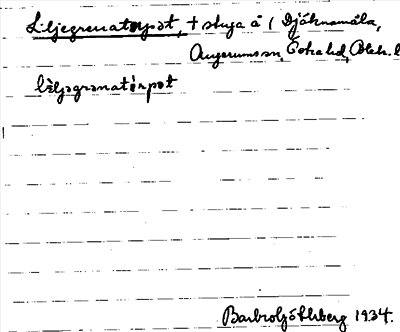 Liljegrenatorpet, + stuga å 1 Djöknamåla,
Augerums sn, Östra hd, Blek. l
liljegranatorpet
Barbro Söderberg 1934.